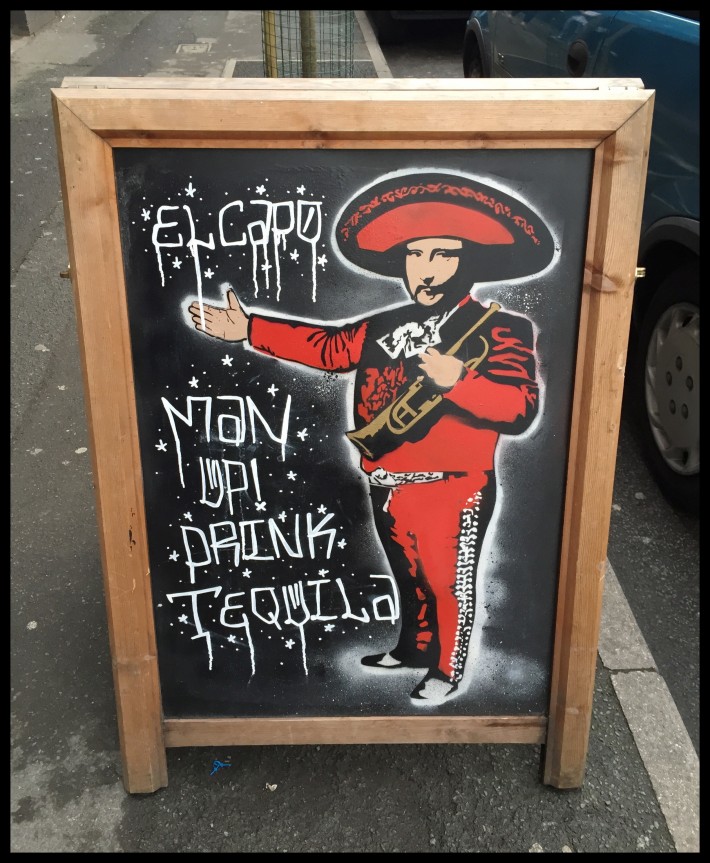 EL CaPO
MaN
UP!
DRINK
TEQUILa